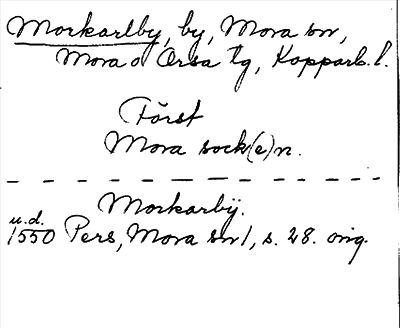 Morkarlby, by, Mora sn,
Mora o Orsa tg, Kopparb. l.
Först
Mora sock(e)n.
Morkarbÿ.
u.d.
1550 Pers, Mora sn 1, s. 28. orig.